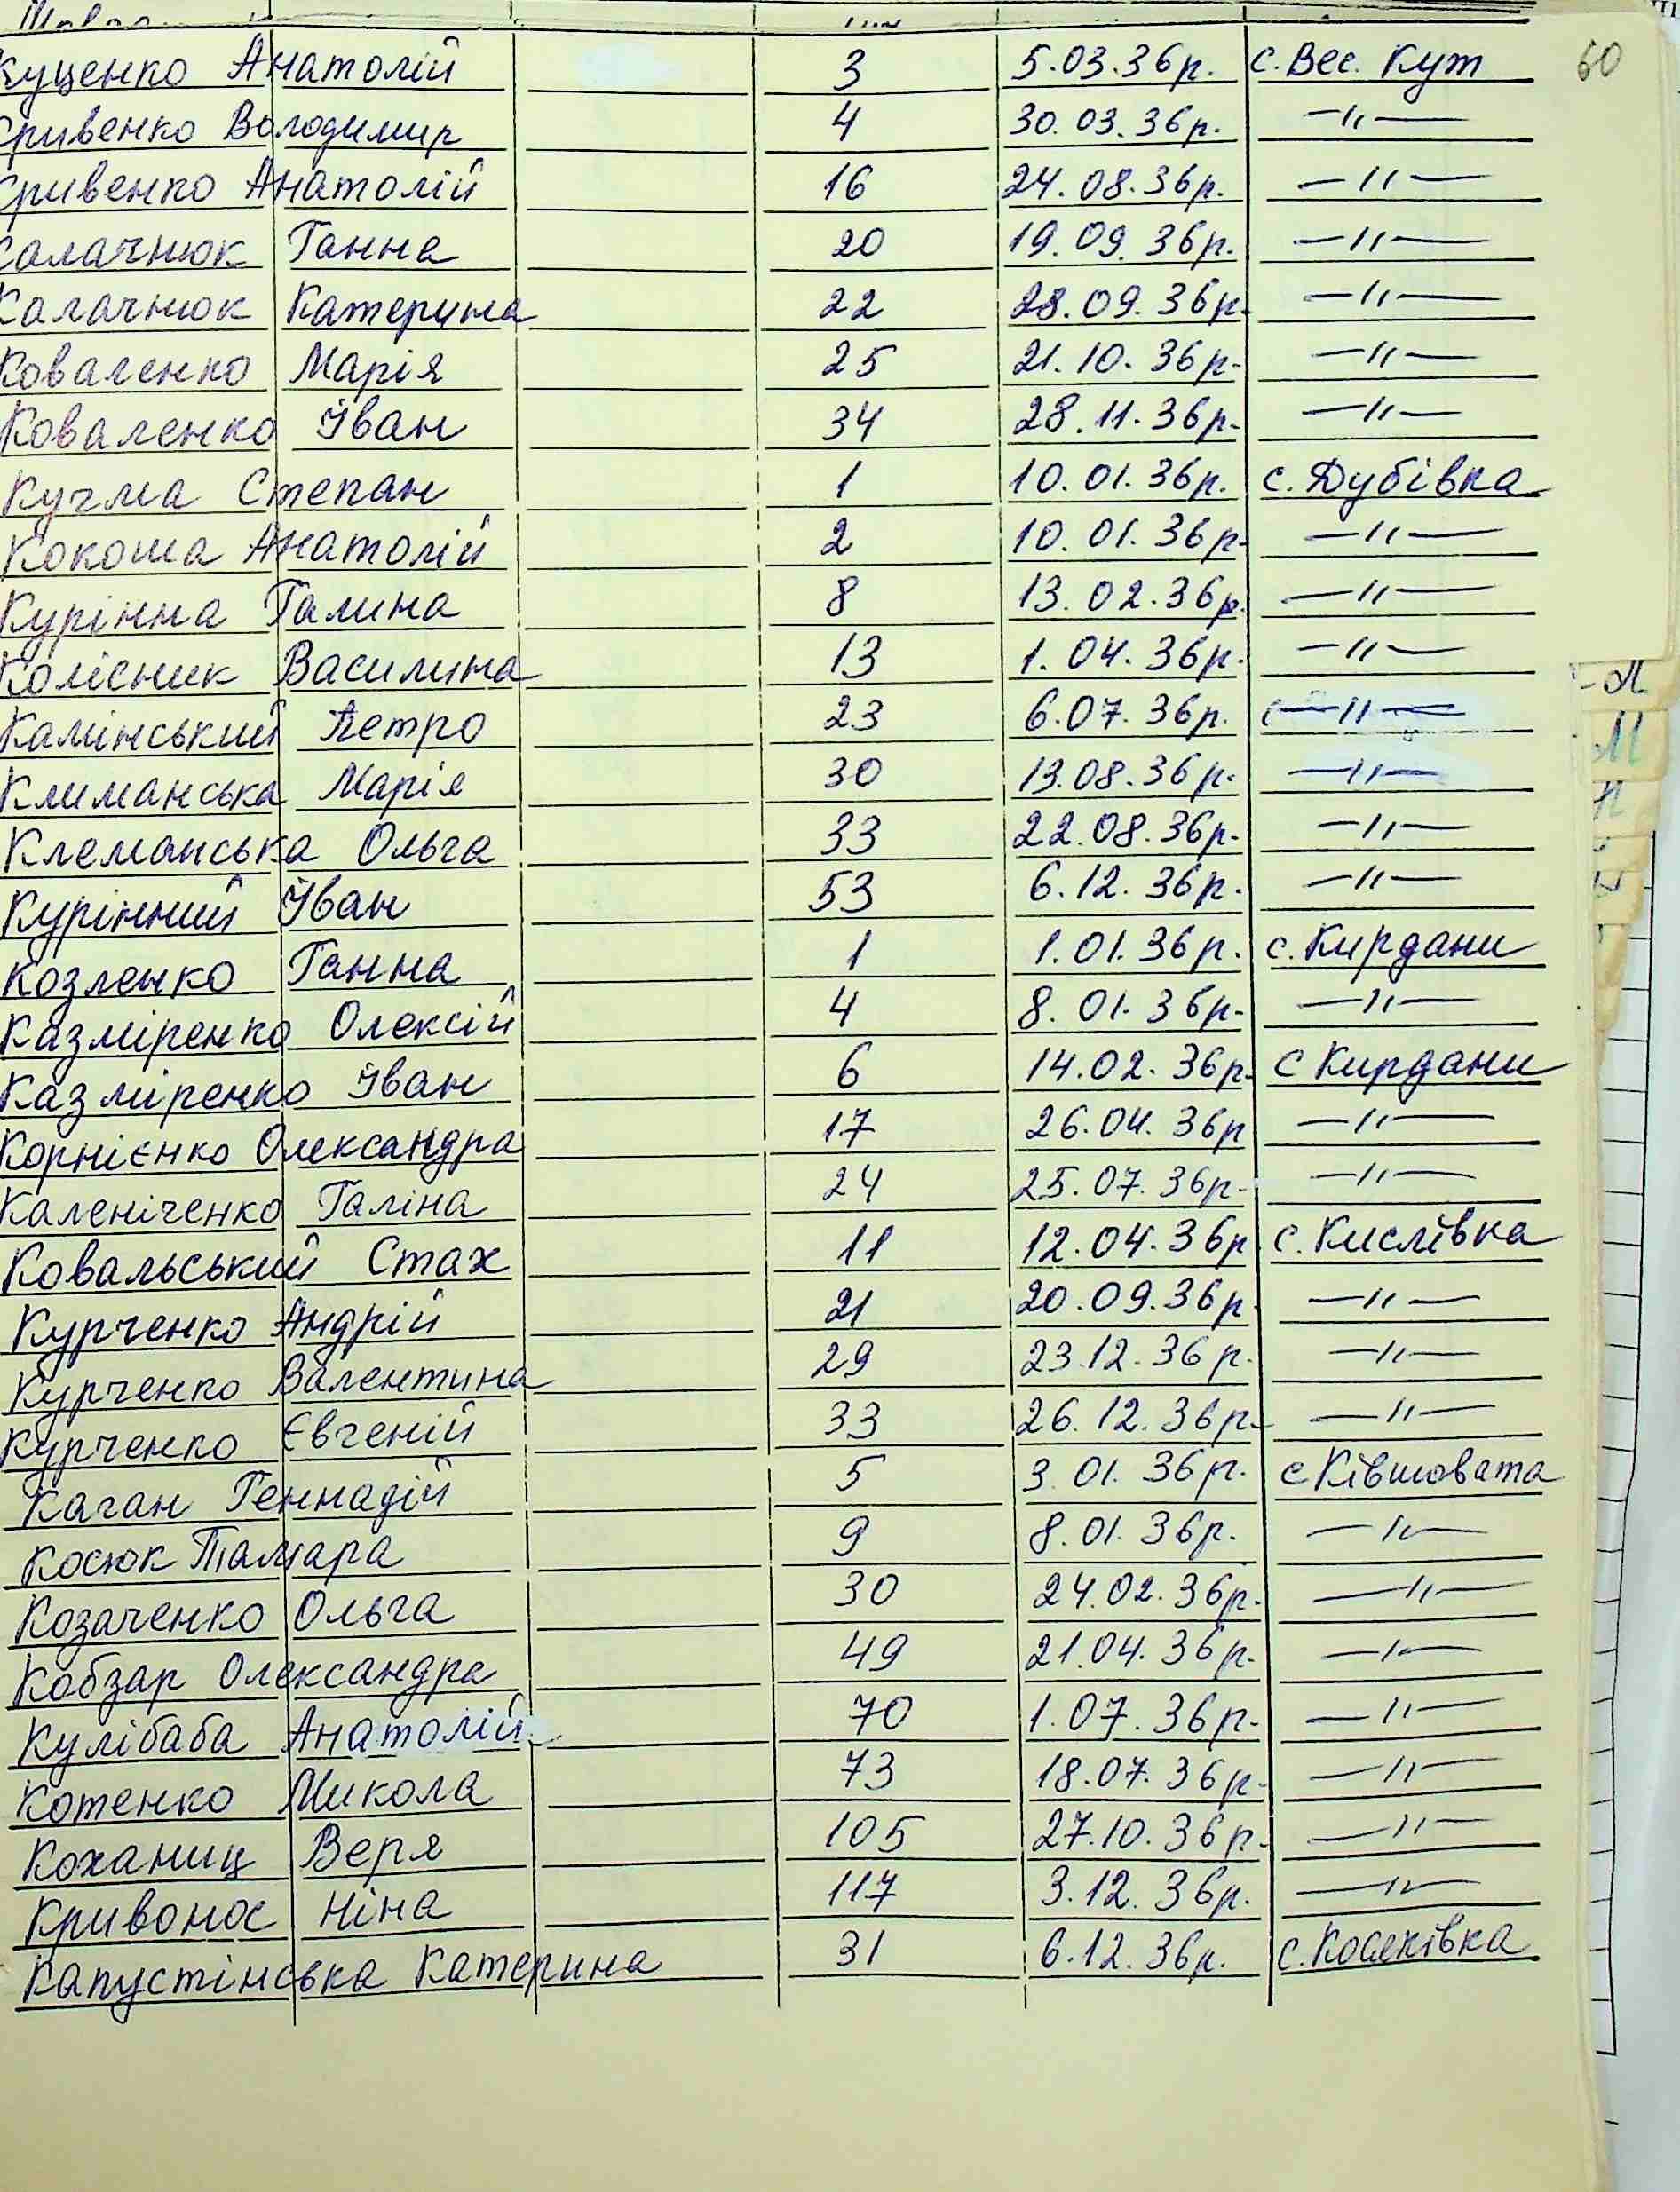 60
Куценко Анатолій 3 5.03.36р. с. Вес. Кут
Кривенко Володимир 4 30.03.36р. —〃—
Кривенко Анатолій 16 24.08.36р. —〃—
Салачнюк Ганна 20 19.09.36р. —〃—
Калачнюк Катерина 22 28.09.36р. —〃—
Коваленко Марія 25 21.10.36р. —〃—
Коваленко Іван 34 28.11.36р. —〃—
Кучма Степан 1 10.01.36р. с. Дубівка
Кокоша Анатолій 2 10.01.36р. —〃—
Курінна Галина 8 13.02.36р. —〃—
Колісник Василина 13 1.04.36р. —〃—
Камінський Петро 23 6.07.36р. —〃—
Климанська Марія 30 13.08.36р. —〃—
Клеманська Ольга 33 22.08.36р. —〃—
Курінний Іван 53 6.12.36р. —〃—
Козленко Ганна 1 1.01.36р. с. Кирдани
Казміренко Олексій 4 8.01.36р. —〃—
Казміренко Іван 6 14.02.36р. с Кирдани
Корнієнко Олександра 17 26.04.36р —〃—
Каленіченко Галіна 24 25.07.36р. —〃—
Ковальський Стах 11 12.04.36р с. Кислівка
Курченко Андрій 21 20.09.36р. —〃—
Курченко Валентина 29 23.12.36р. —〃—
Курченко Євгеній 33 26.12.36р. —〃—
Каган Геннадій 5 3.01.36р. с Ківшовата
Косюк Тамара 9 8.01.36р. —〃—
Козаченко Ольга 30 24.02.36р. —〃—
Кобзар Олександра 49 21.04.36р. —〃—
Кулібаба Анатолій 70 1.07.36р. —〃—
Котенко Микола 73 18.07.36р. —〃—
Коханиц Веря 105 27.10.36р. —〃—
Кривонос Ніна 117 3.12.36р. —〃—
Капустінська Катерина 31 6.12.36р. с. Косяківка